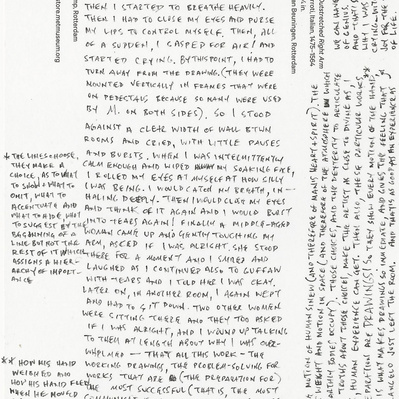 THEN I STARTED TO BREATHE HEAVILY.
THEN I HAD TO CLOSE MY EYES AND PURSE
MY LIPS TO CONTROL MYSELF. THEN, ALL
OF A SUDDEN, I GASPED FOR AIR! AND
STARTED CRYING. BY THIS POINT, I HAD TO
TURN AWAY FROM THE DRAWING. (THEY WERE
MOUNTED VERTICALLY IN FRAMES THAT WERE
ON PEDESTALS BECAUSE SO MANY WERE USED
BY M. ON BOTH SIDES). SO I STOOD
AGAINST A CLEAR WIDTH OF WALL BTWN
ROOMS AND CRIED, WITH LITTLE PAUSES
AND BURSTS. WHEN I WAS INTERMITTENTLY
CALM ENOUGH AND WIPED MY SOAKING FACE,
I ROLLED MY EYES AT MYSELF AT HOW SILLY
I WAS BEING. I WOULD CATCH MY BREATH, IN-
HALING DEEPLY. THEN I WOULD CLOSE MY EYES
AND THINK OF IT AGAIN AND I WOULD BURST
INTO TEARS AGAIN! FINALLY A MIDDLE-AGED
WOMAN CAME UP AND GENTLY TOUCHING MY
ARM, ASKED IF I WAS ALRIGHT. SHE STOOD
THERE FOR A MOMENT AND I SMILED AND
LAUGHED AS I CONTINUED ALSO TO GUFFAW
WITH TEARS AND I TOLD HER I WAS OKAY.
LATER ON, IN ANOTHER ROOM, I AGAIN WEPT
AND HAD TO GET DOWN. TWO OTHER WOMEN
WERE SITTING THERE AND THEY TOO ASKED
IF I WAS ALRIGHT, AND I WOUND UP TALKING
TO THEM AT LENGTH ABOUT WHY I WAS OVER-
WHELMED — THAT ALL THIS WORK — THE
WORKING DRAWINGS, THE PROBLEM-SOLVING FOR
WORKS THAT ARE (THE PREPARATION FOR)
THE MOST SUCCESSFUL (THAT IS, THE MOST
* THE LINES CHOOSE,
THEY MAKE A
CHOICE, AS TO WHAT
TO SHOW & WHAT TO
OMIT, WHAT TO
ACCENTUATE AND
WHAT TO HIDE, WHAT
TO SUGGEST BY THE
BEGINNING OF A
LINE BUT NOT THE
REST OF IT WHICH
ASSIGNS A HIER-
ARCHY OF IMPORT-
ANCE
** HOW HIS HAND
WEIGHED AND
HOW HIS HAND FLEW
WHEN HE
MOTION OF HUMAN SINEW (AND THEREFORE OF MAN'S HEART & SPIRIT), THE
WEIGHT AND MOTION IN SPACE (AND THEREFORE OF THE ATMOSPHERE IN WHICH
EARTHLY BODIES OCCUPY). THOSE CHOICES, AND THE DEXTERITY TO ARTICULATE
TRUTHS ABOUT THOSE CHOICES, MAKE THE ARTIST AS CLOSE TO DIVINE AS
HUMAN EXPERIENCE CAN GET. THEN ALSO, THESE PARTICULAR WORKS
ARE DRAWINGS! SO THEY SHOW EVERY MOTION OF THE HAND**
WHAT MAKES DRAWINGS SO IMMEDIATE, AND GIVES THE FEELING THAT
ANGELO JUST LEFT THE ROOM. AND THAT IS AS GOOD AS AN EXPERIENCE AS
WE CAN HAVE
OF GENIUS.
AND THAT'S
WHAT I WAS
CRYING
JOY FOR THE
OF LIFE.
Boijmans Van Beuningen, Rotterdam